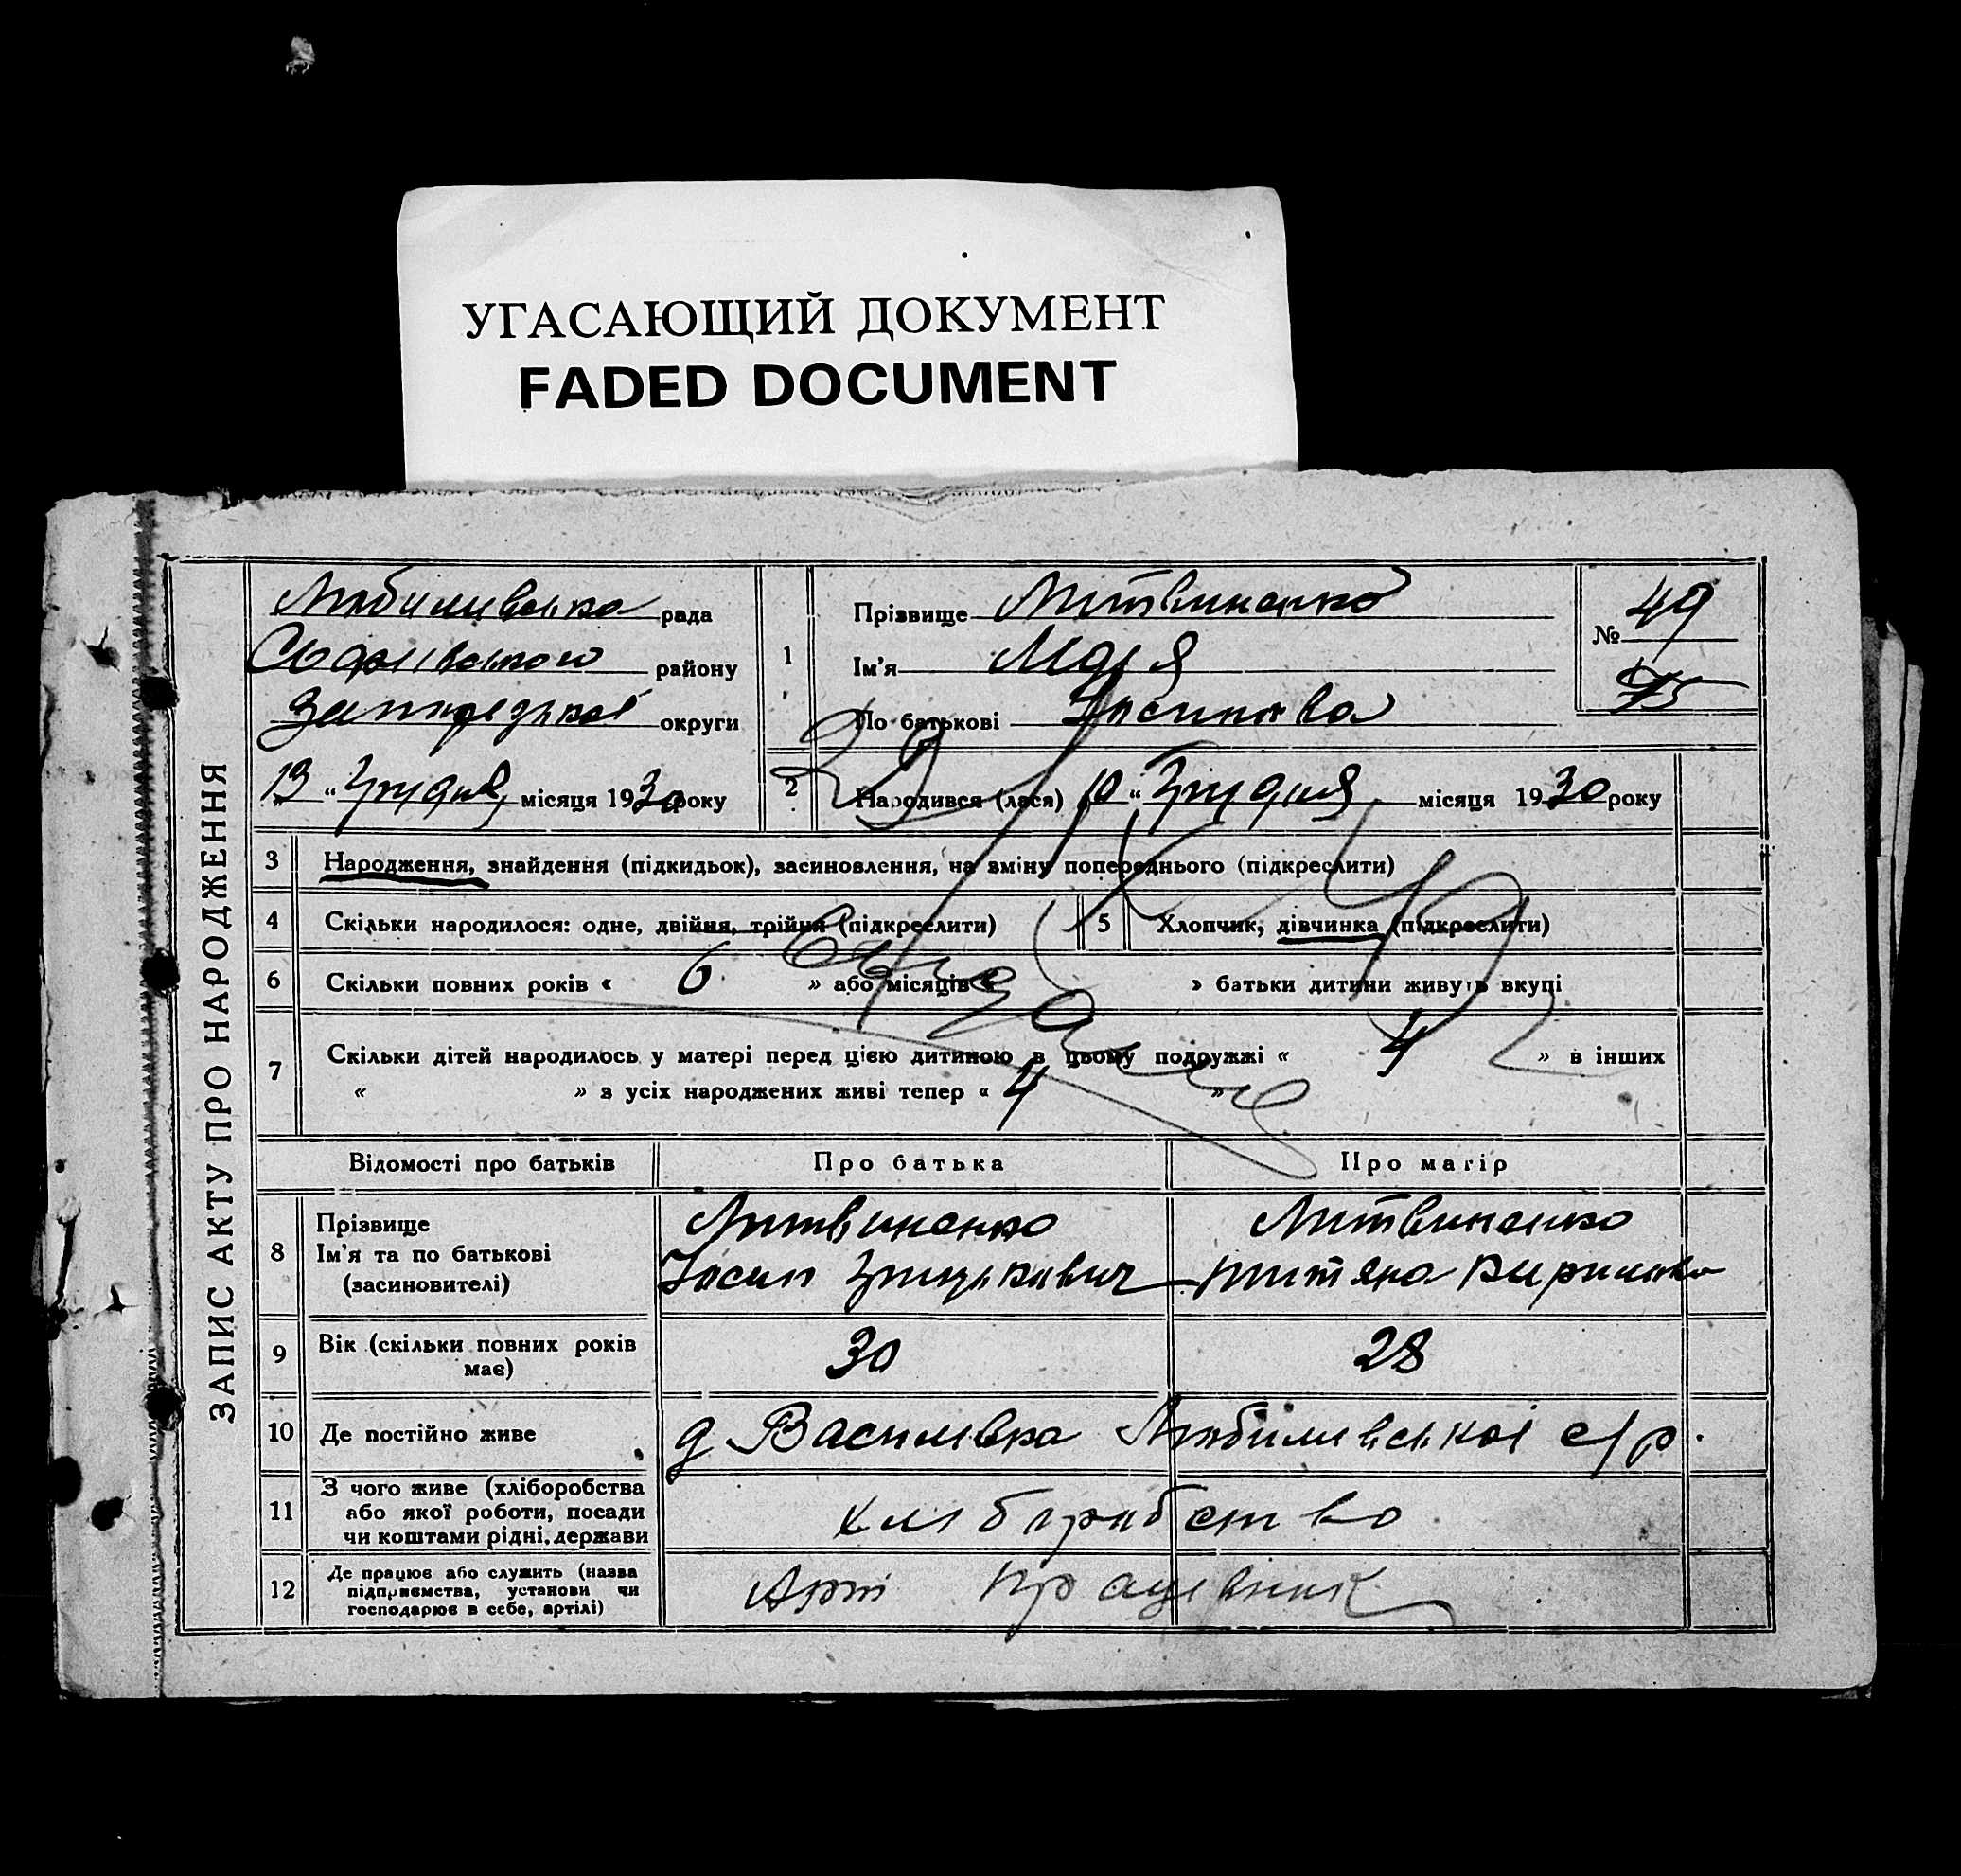 УГАСАЮЩИЙ ДОКУМЕНТ
FADED DOCUMENT
ЗАПИС АКТУ ПРО НАРОДЖЕННЯ
Любимивська рада
району
Запорізької округи
13 „ Грудня місяця 1930 року
1
Прізвище Литвиненко
Ім'я Марія
По батькові Йосипова
№ 49
75
2
Народився (лася) 10 „ Грудня місяця 1930 року
3 Народження, знайдення (підкидьок), засиновлення, на зміну попереднього (підкреслити)
4 Скільки народилося: одне, двійня, трійня (підкреслити)
5 Хлопчик, дівчинка (підкреслити)
6 Скільки повних років « 6 » або місяців « » батьки дитини живуть вкупі
7 Скільки дітей народилось у матері перед цією дитиною в цьому подружжі « 4 » в інших
« » з усіх народжених живі тепер « 4 »
Відомості про батьків Про батька Про матір
8 Прізвище
Ім'я та по батькові
(засиновителі)
Литвиненко
Йосип Грицькович
Литвиненко
Титяна Кирилівна
9 Вік (скільки повних років має) 30 28
10 Де постійно живе д Василивка Любимивської с/р.
11 З чого живе (хліборобства
або якої роботи, посади
чи коштами рідні, держави
хліборобство
12 Де працює або служить (назва
підприємства, установи чи
господарює в себе, артілі)
Арт